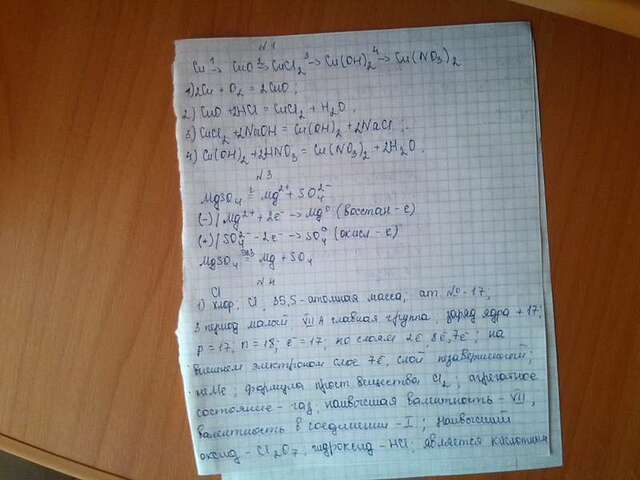 N 1
Cu ¹→ CuO ²→ CuCl₂ ³→ Cu(OH)₂ ⁴→ Cu(NO₃)₂
1) 2Cu + O₂ = 2CuO;
2) CuO + 2HCl = CuCl₂ + H₂O.
3) CuCl₂ + 2NaOH = Cu(OH)₂ + 2NaCl;
4) Cu(OH)₂ + 2HNO₃ = Cu(NO₃)₂ + 2H₂O.
N 3
MgSO₄ = Mg²⁺ + SO₄²⁻
(-) | Mg²⁺ + 2e⁻ → Mg⁰ (восстан-е)
(+) | SO₄²⁻ - 2e⁻ → SO₄⁰ (окисл-е)
MgSO₄ = Mg + SO₄
N 4
Cl
1) хлор, Cl, 35,5-атомная масса; ат. № -17,
3 период малый VII A главная группа, заряд ядра +17;
p = 17; n = 18; e⁻ = 17; по слоям 2e⁻ 8e⁻, 7e⁻; на
внешнем электроном слое 7e⁻, слой незавершенный;
неМе; формула прост. вещества Cl₂; агрегатное
состояние - газ; наивысшая валентность - VII,
валентность в соединении - I; наивысший
оксид - Cl₂O₇, гидроксид - HCl; является кислотным